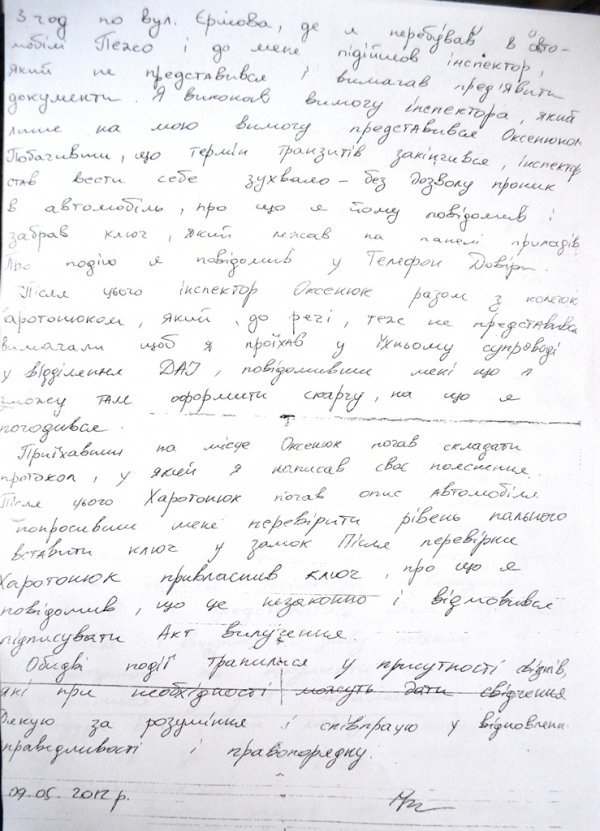 3 год по вул. Єршова, де я перебував в авто-
мобілі Пежо і до мене підійшов інспектор,
який не представився і вимагав пред'явити
документи. Я виконав вимогу інспектора, який
лише на мою вимогу представився Оксенюком
Побачивши, що термін транзитів закінчився, інспектор
став вести себе зухвало – без дозволу проник
в автомобіль, про що я йому повідомив і
забрав ключ, який лежав на панелі приладів
Про подію я повідомив у Телефон Довіри.
Після цього інспектор Оксенюк разом з колегою
Харотонюком, який, до речі, теж не представився
вимагали щоб я проїхав у їхньому супроводі
у відділення ДАІ, повідомивши мені що я
зможу там оформити скаргу, на що я
погодився.
Приїхавши на місце Оксенюк почав складати
протокол, у якій я написав своє пояснення.
Після цього Харотонюк почав опис автомобіля
попросивши мене перевірити рівень пального
вставити ключ у замок Після перевірки
Харотонюк привласнив ключ, про що я
повідомив, що це незаконно і відмовився
підписувати Акт вилучення.
Обидві події трапилися у присутності свідків,
які при необхідності можуть дати свідчення
Дякую за розуміння і співпрацю у відновленні
праведливості і правопорядку.
09.05.2012 р.